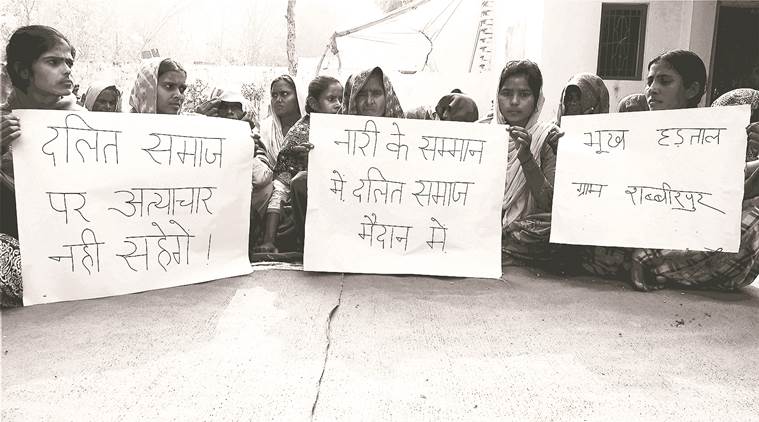 दलित समाज
पर अत्याचार
नही सहेगे।
नारी के सम्मान
में दलित समाज
मैदान में
भूख हड़ताल
ग्राम शब्बीरपुर